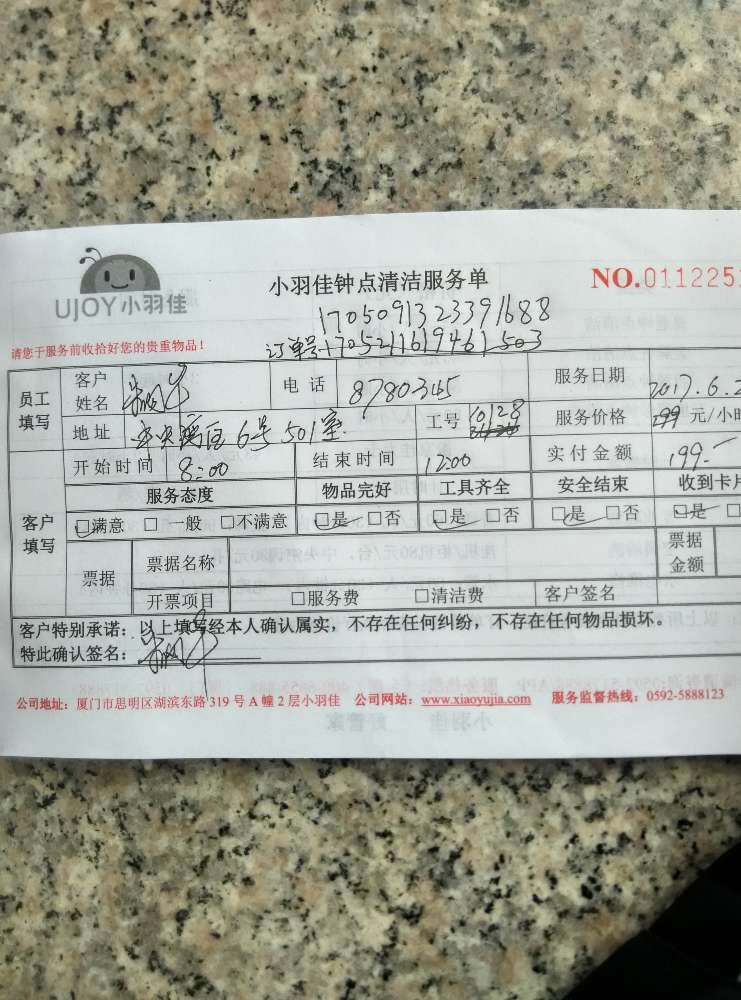 UJOY小羽佳
小羽佳钟点清洁服务单
NO.011225
1705091323391688
请您于服务前收拾好您的贵重物品！
订单号:1705211619461503
员工填写
客户姓名
电话 8780345
服务日期 2017.6.2
地址 6号501室
工号 10128
服务价格 299 元/小时
客户填写
开始时间 8:00
结束时间 12:00
实付金额 199.-
服务态度 物品完好 工具齐全 安全结束 收到卡片
☑满意 □一般 □不满意 ☑是 □否 ☑是 □否 ☑是 □否 ☑是 □
票据
票据名称
票据金额
开票项目 □服务费 □清洁费 客户签名
客户特别承诺：以上填写经本人确认属实，不存在任何纠纷，不存在任何物品损坏。
特此确认签名：
公司地址：厦门市思明区湖滨东路319号A幢2层小羽佳 公司网站：www.xiaoyujia.com 服务监督热线：0592-5888123